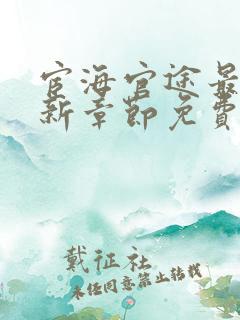 宦海官途最
新章節免費
戴征社
未经同意禁止转载